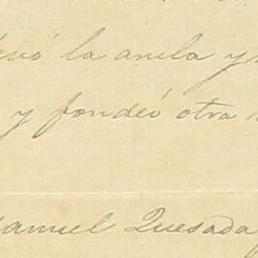 la ancla y
y fondeó otra
Manuel Quesada